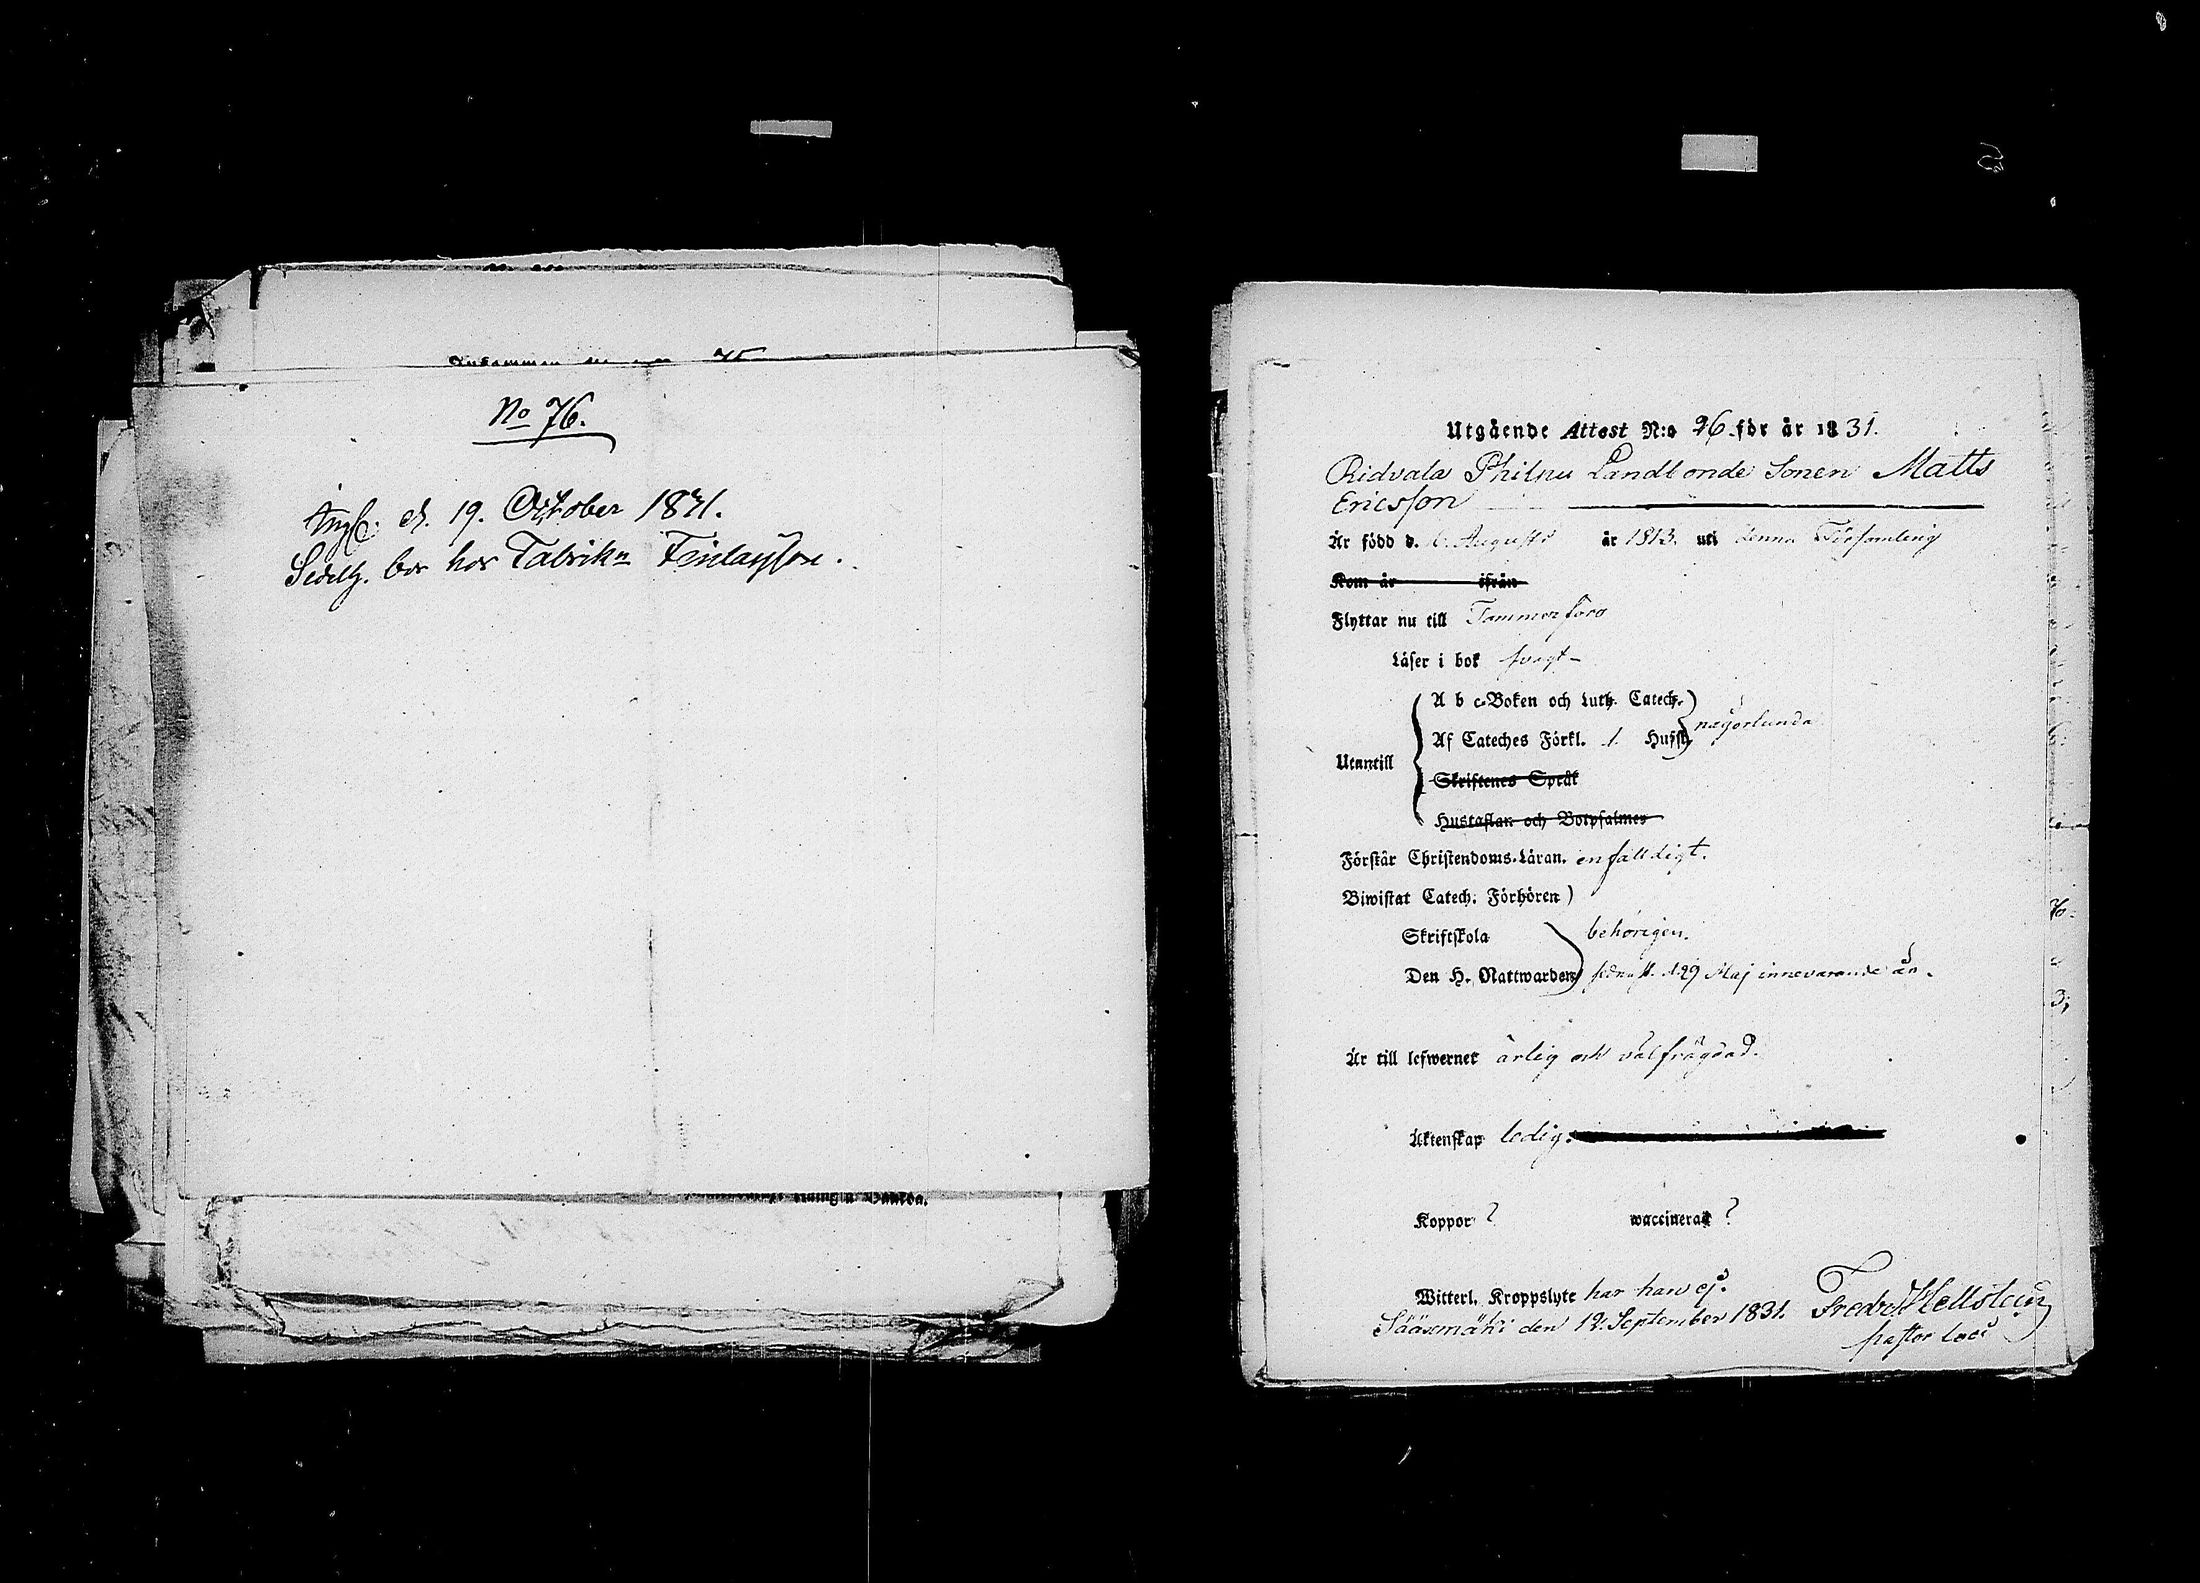 No 76.
d. 19. October 1831.
bor hos Fabrikn Finlaysson.
Utgående Attest N:o 26 för år 1831.
Ridvala Philpu Landbonde Sonen Matts
Ericsson
Är född d. 6. Augusti år 1813. uti denna Församling
Kom år ifrån
Flyttar nu till Tammerfors
Läser i bok svagt
A b c-Boken och Luth. Catech.
någorlunda
Af Cateches Förkl. 1. Hufst.
Utantill
Skriftenes Språk
Hustaflan och Botpsalmer
Förstår Christendoms-Läran. enfalldigt.
Biwistat Catech. Förhören
Skriftskola behörigen.
Den H. Nattwarden sednast. d. 29 Maj innevarande år.
Är till lefwernet ärlig och välfrägdad.
Äktenskap ledig.
Koppor ? waccinerad ?
Witterl. Kroppslyte har han ej.
Sääxmäki den 12. September 1831. Fredr. Hellstein
pastor loci